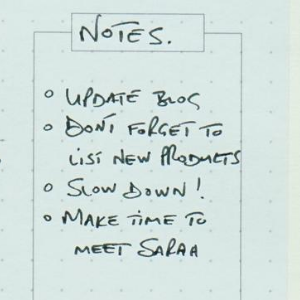 NOTES.
○ UPDATE BLOG
○ DON'T FORGET TO
LIST NEW PRODUCTS
○ SLOW DOWN!
○ MAKE TIME TO
MEET SARAA